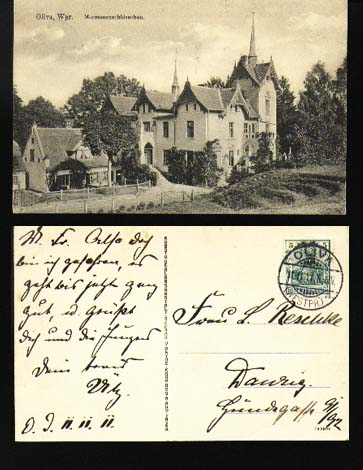 Oliva, Wpr. Mormonenschlösschen.
M. Fr. Also doch
bin ich gefahren, es
geht bis jetzt ganz
gut, u. grüßt
dich und die Jungens
Dein treuer
O. J. 11. 11. 11.
5 5
OLIVA
(WESTPR.)
Frau L. Reschke
Danzig.
Hundegasse